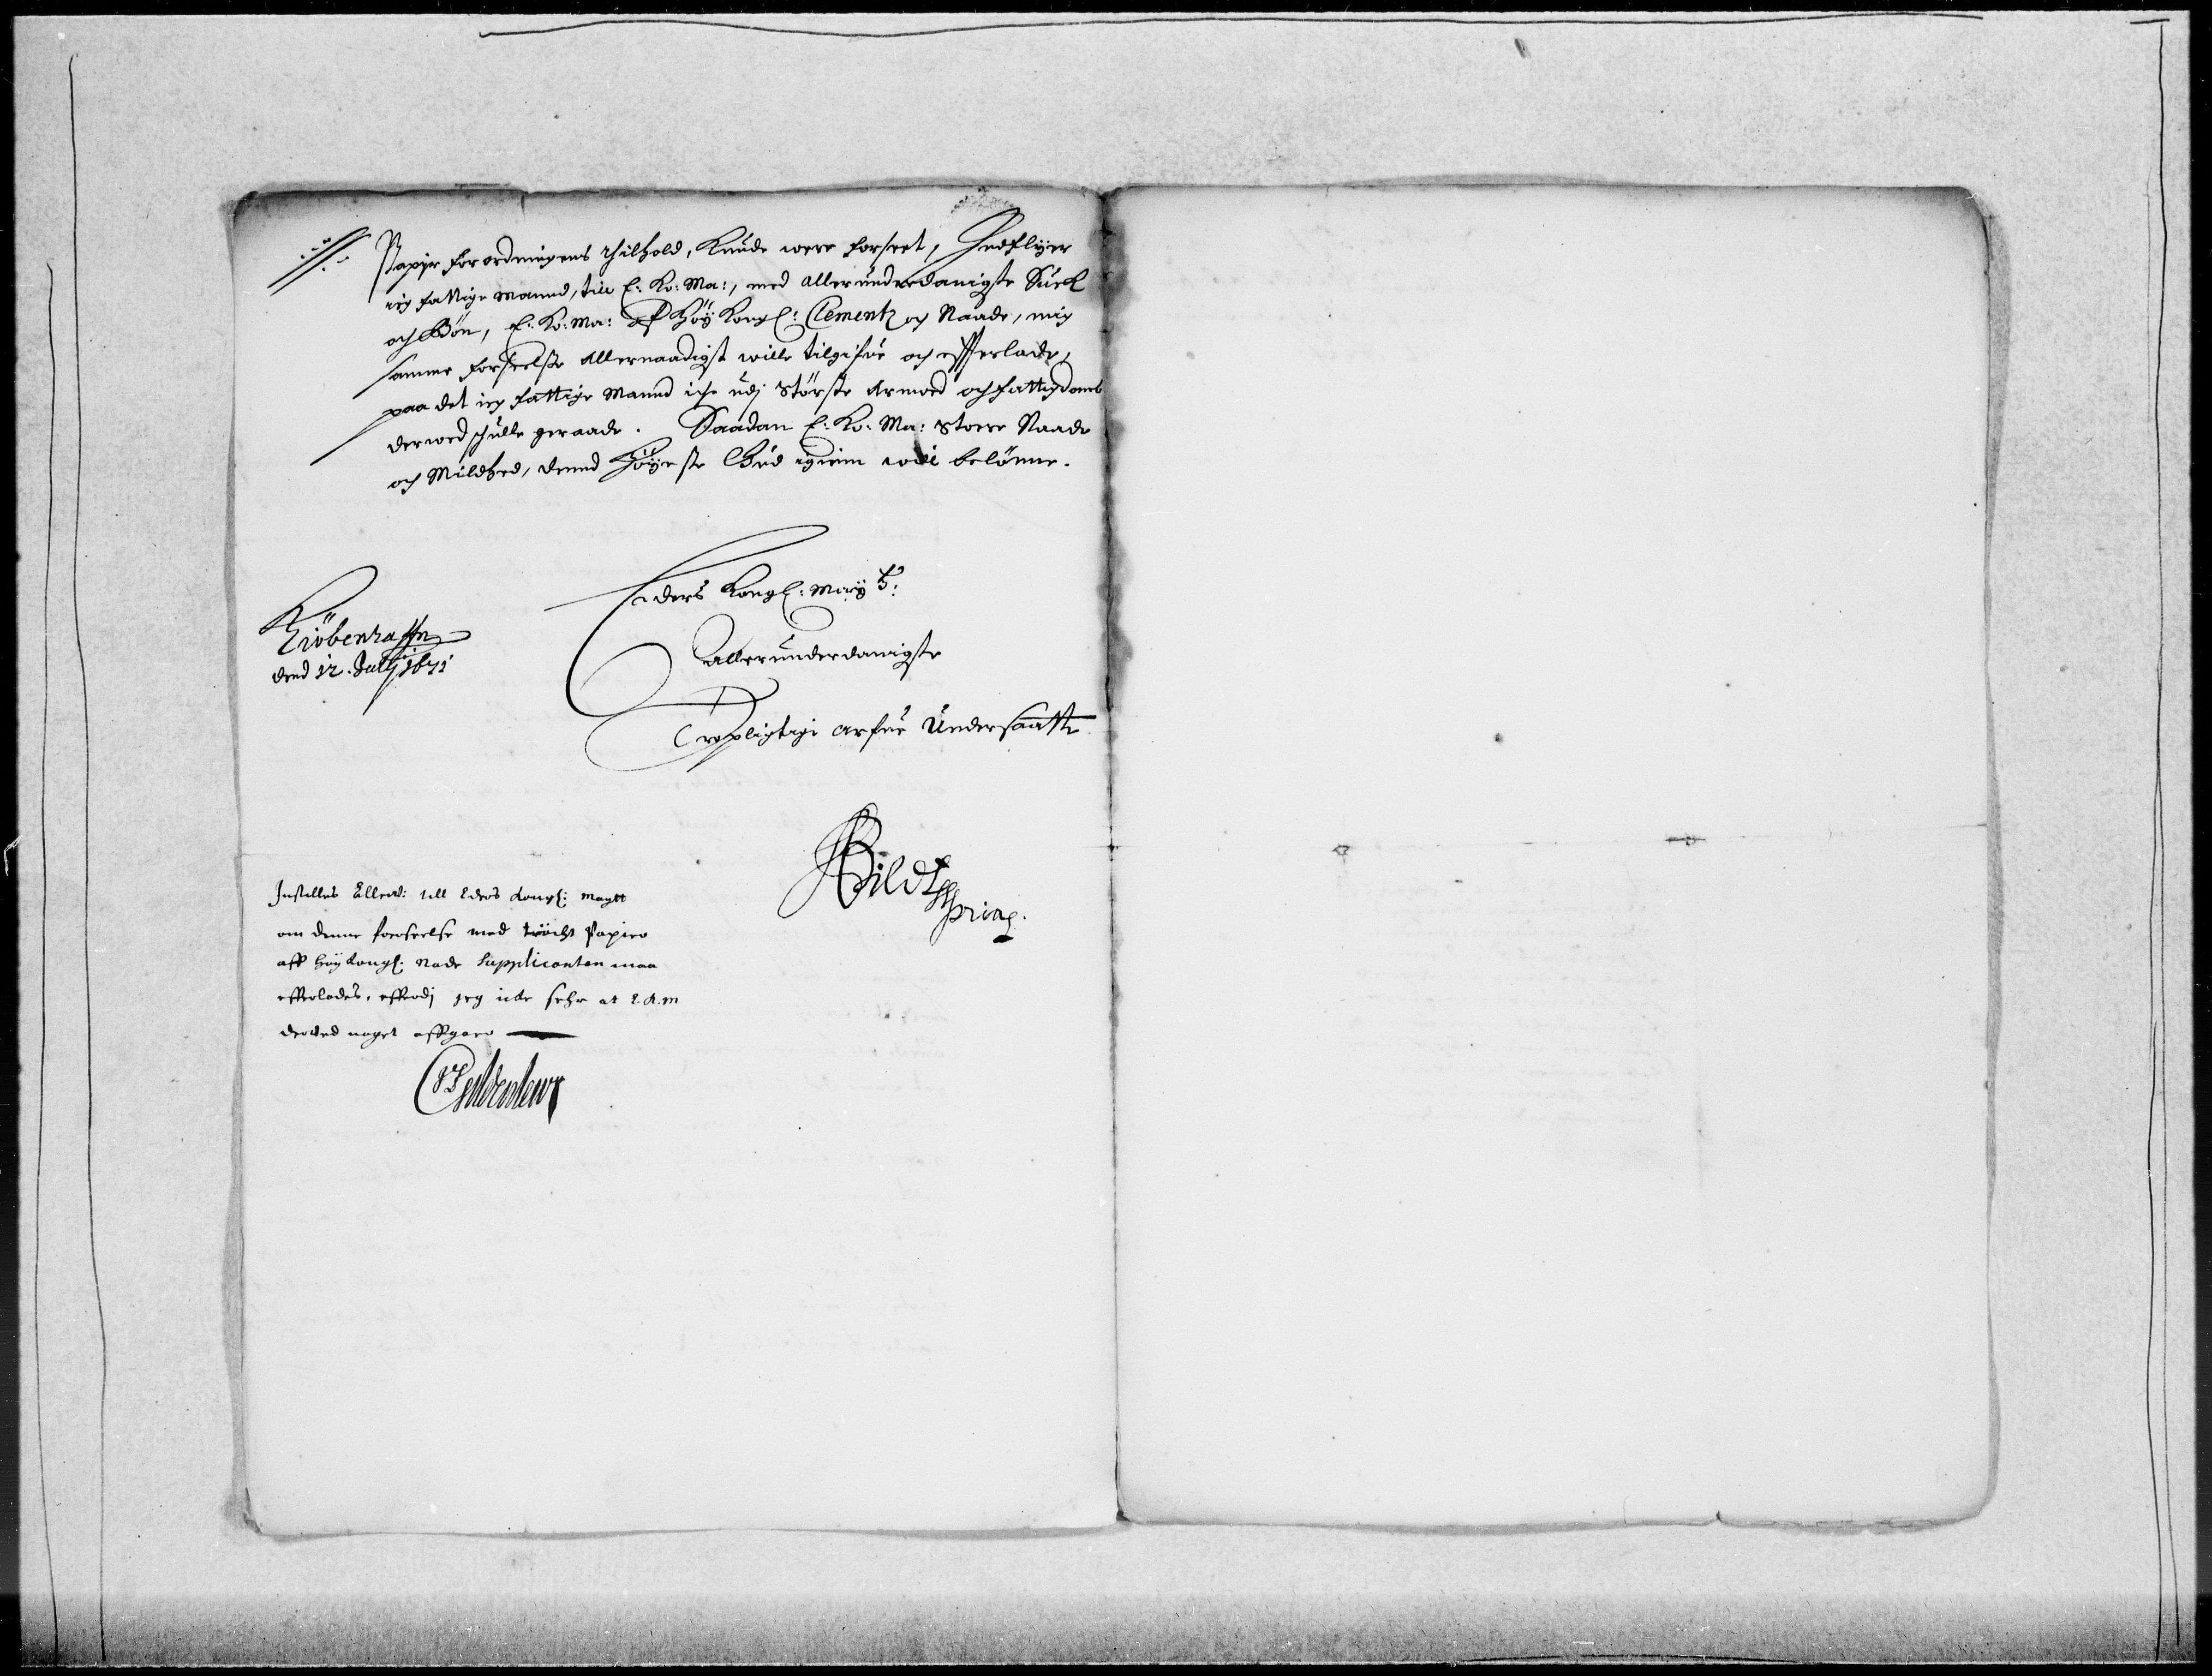 Papiir forordningens Jnhold, kunde were forseet, Henflyer
ieg fattige Mannd, till E: Ko: Ma:, med allerunderdanigste Suck
och Bön, E: Ko: Ma: aff höy Kongl: Clementz og Naade, mig
samme forseelse allernaadigst wille tilgifue och efferlade,
paa det ieg fattige Mannd iche udj störste Armoed och fattigdomb
derwed schulle geraade. Saadan E: Ko: Ma: stoere Naade
og Mildhed, dennd Höyeste Gud igiein will belönne.
Kiöbenhaffn
dend 12. Julij 1671
Eders Kongl: Mayts:
allerunderdanigste
Trepligtige arfue Undersaatte
Jnstilles Allerd: till Eders Kongl: Maytt
om denne forseelse med trÿcht Papier
aff höy Kongl: Nade Supplicanten maa
efterlades, efterdj jeg icke sehr at E.K.M
derved noget affgaar
Gyldenlewe